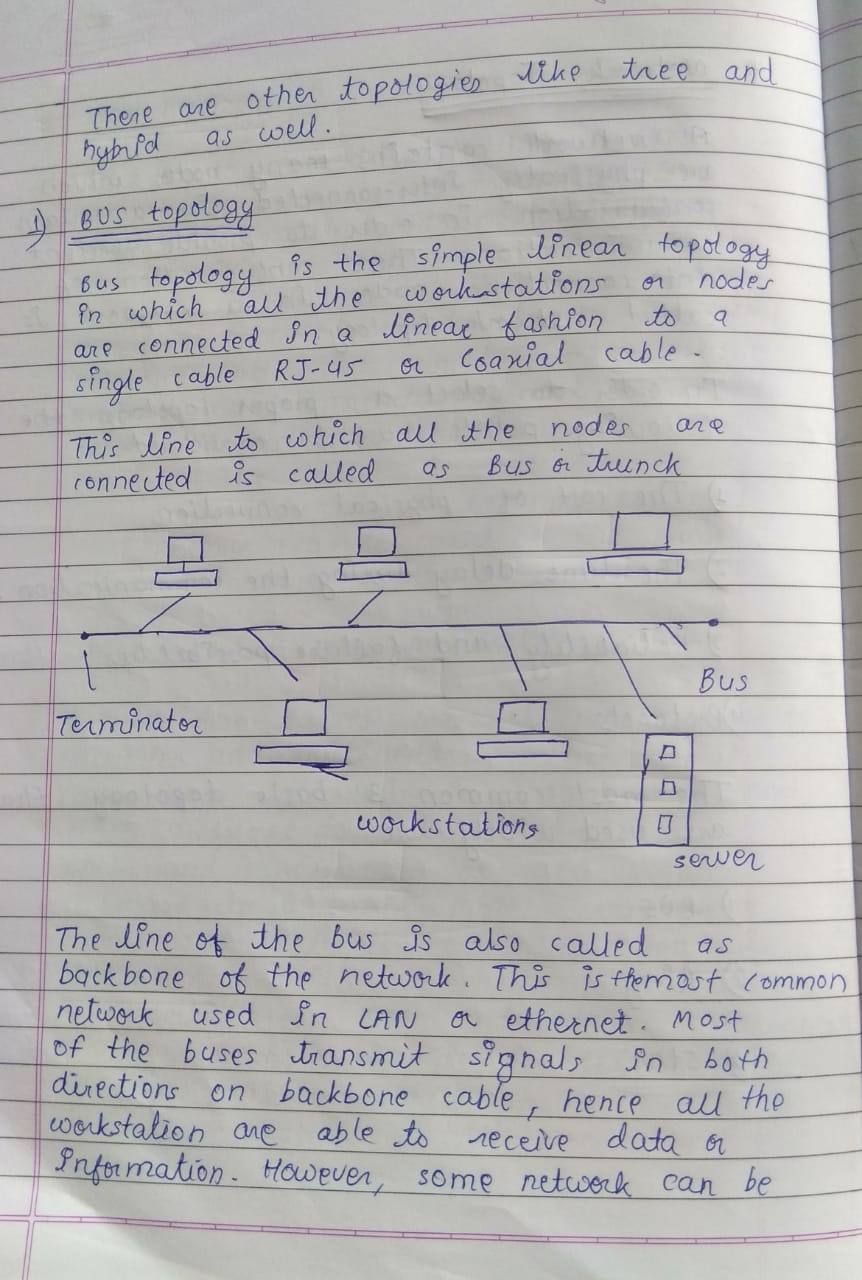 There are other topologies like tree and
hybrid as well.
1) BUS topology
Bus topology is the simple linear topology
in which all the workstations or nodes
are connected in a linear fashion to a
single cable RJ-45 or coaxial cable.
This line to which all the nodes are
connected is called as Bus or trunck
Bus
Terminator
workstations
server
The line of the bus is also called as
backbone of the network. This is the most common
network used in LAN or ethernet. Most
of the buses transmit signals in both
directions on backbone cable, hence all the
workstation are able to receive data or
Information. However, some network can be